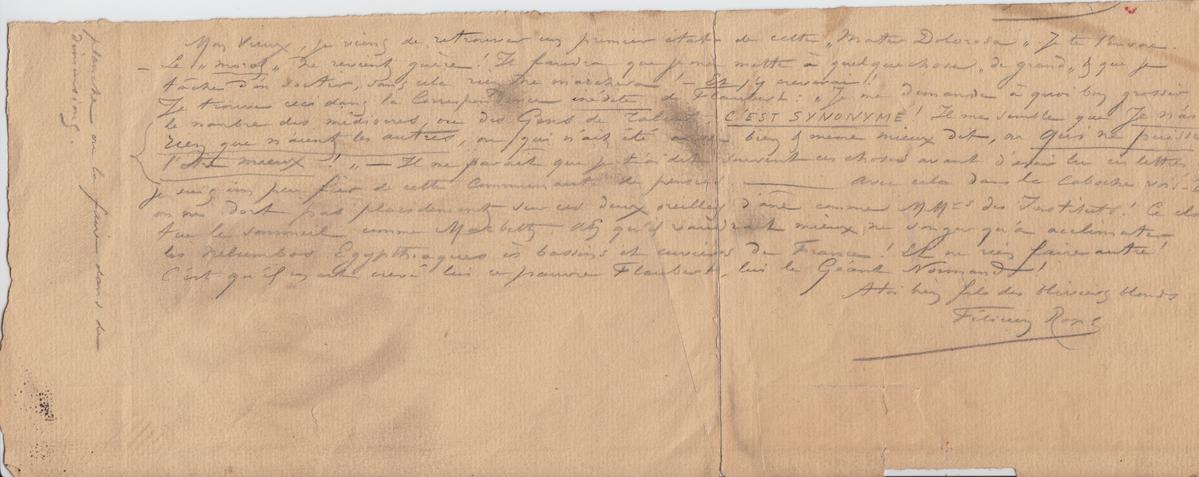 Mon Vieux, je viens de retrouver un premier état de cette „Mater Dolorosa„ Je te l'envoie.
– Le „moral„ ne revient guère! Il faudra que je me mette à quelque chose „de grand„ & que je
tâche d'en sortir, sans cela rien ne marchera! – Et j'y crèverai!!
Je trouve ceci dans la Correspondance inédite de Flaubert: „Je me demande à quoi bon grossir
le nombre des médiocres, ou des Gens de Talent – C'EST SYNONYME! Il me semble que Je n'ai
rien que n'aient les autres, ou qui n'ait été aussi bien & même mieux dit, ou qui ne puisse
l'être mieux!„ – Il me paraît que je t'ai dit souvent ces choses avant d'avoir lu ces lettres
je suis un peu fier de cette Communauté de pensées! Avec cela dans la Caboche, vois-
on ne dort pas placidement sur ces deux oreilles d'âne comme MMrs des Instituts! Ce
tue le sommeil comme Macbeth & qu'il vaudrait mieux, ne songer qu'à acclimater
les nélumbos Egypthiaques ès bassins et cuviers de France! Et ne rien faire autre!
C'est qu'il en est crevé lui ce pauvre Flaubert, lui le Géant Normand!
A toi bien fils des blonds
Félicien Rops
planche ou la faire dans le